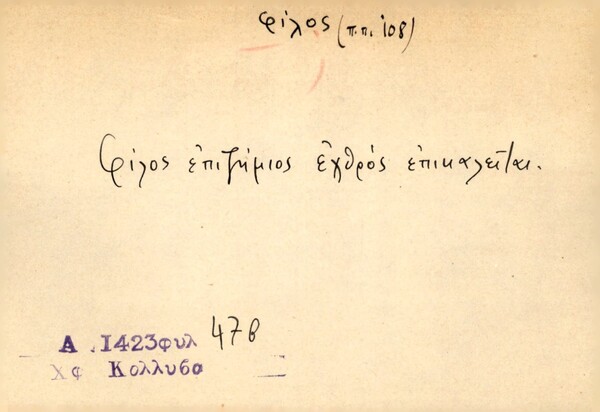 φίλος (π.π. 108)
Φίλος ἐπιζήμιος ἐχθρός ἐπικαλεῖται.
Α .1423φυλ 47β
Χφ Κολλυβα